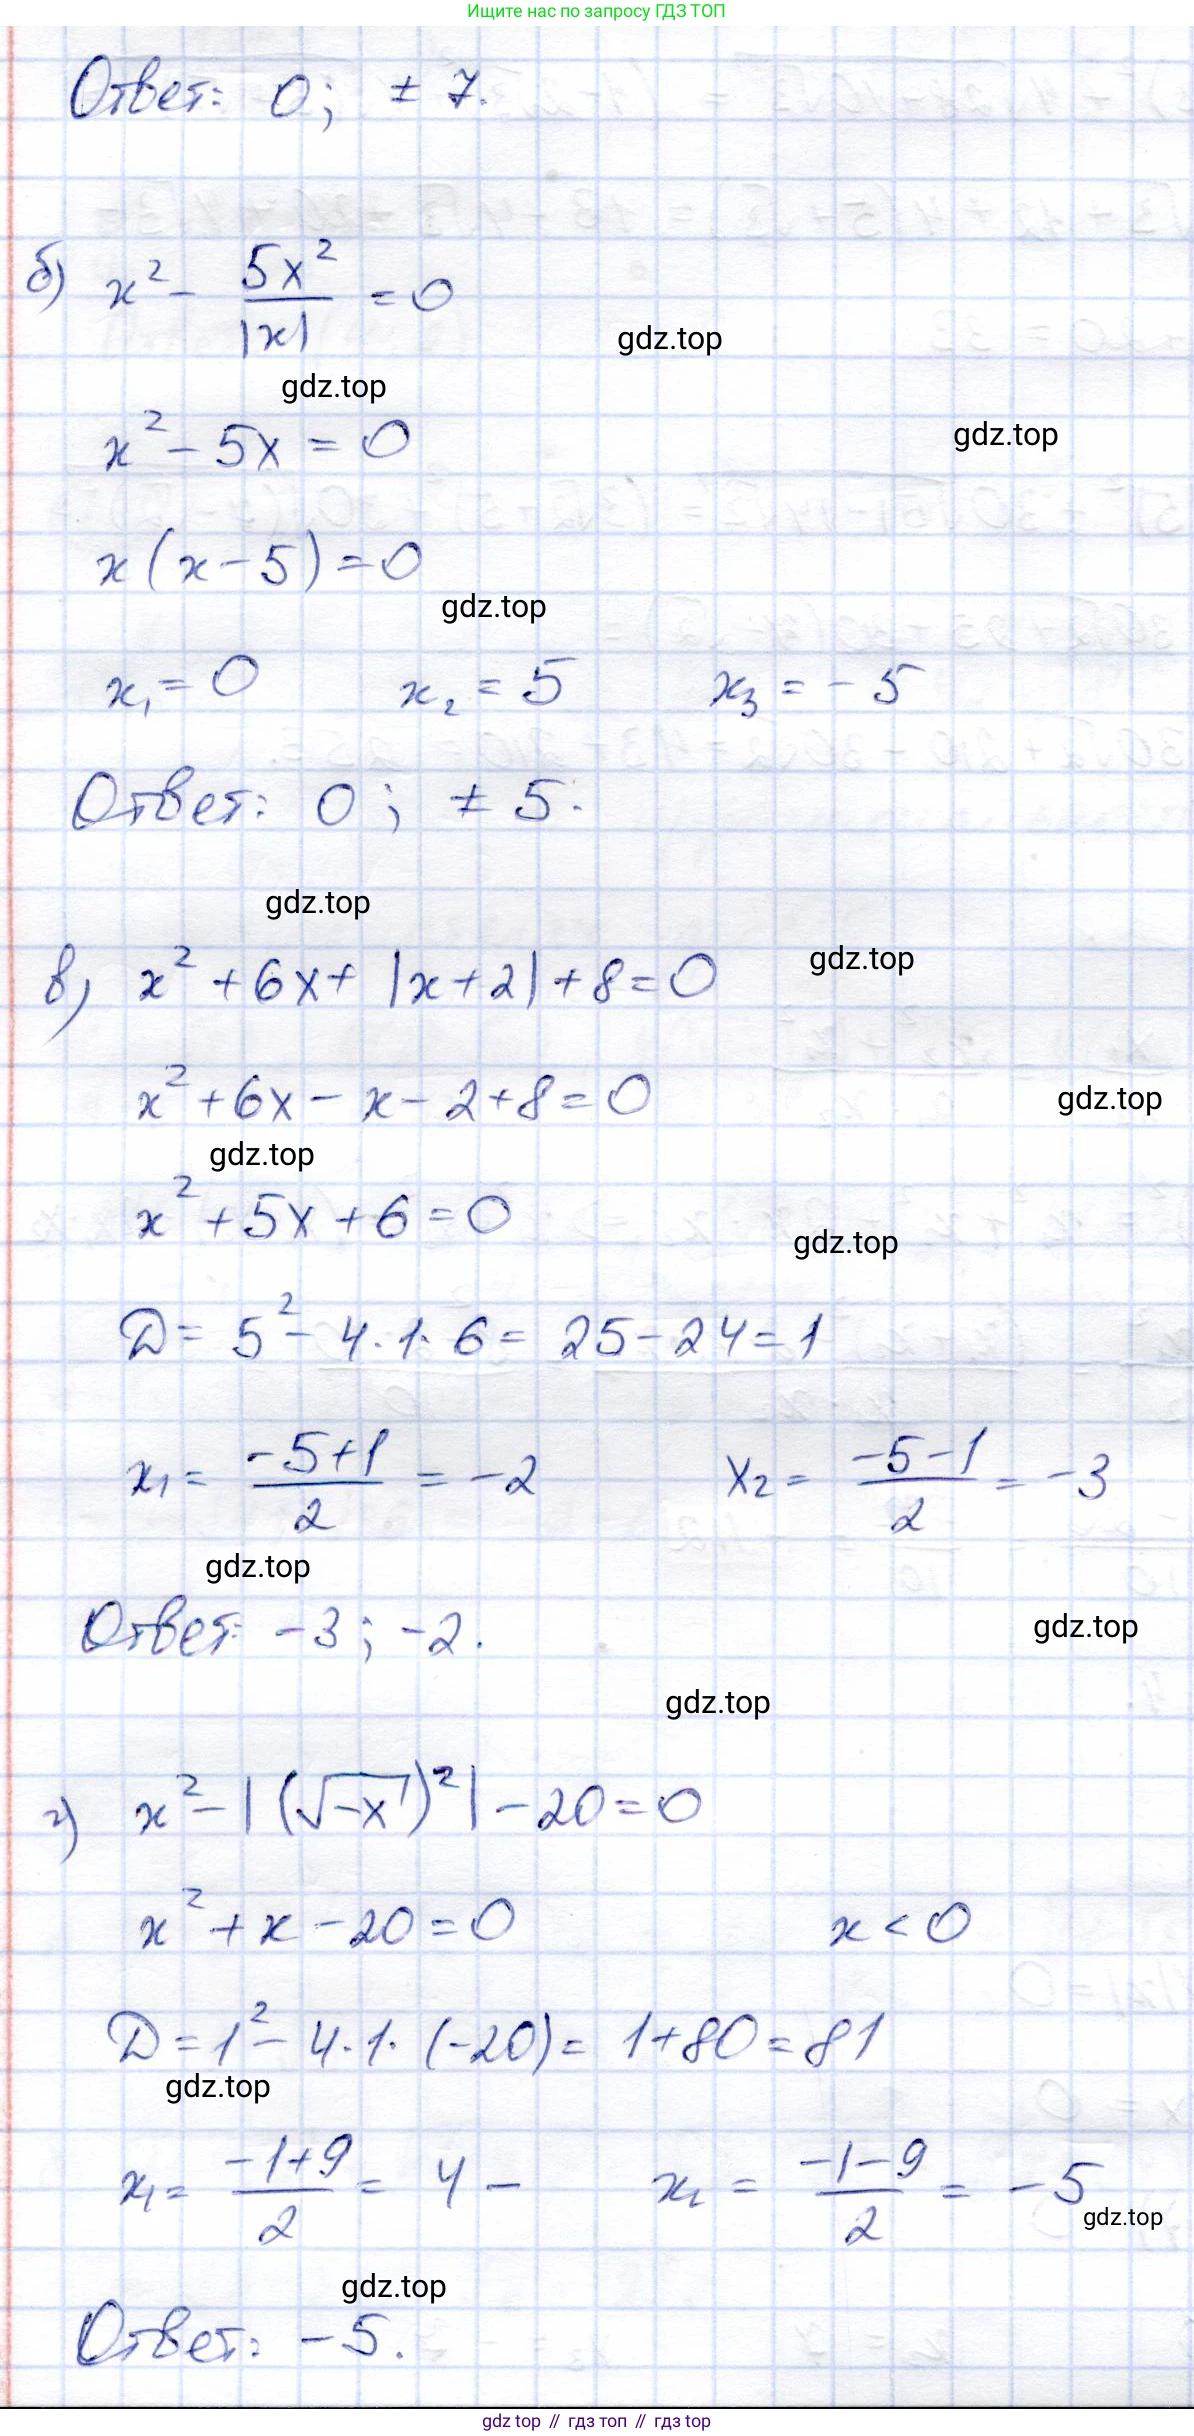 Ищите нас по запросу ГДЗ ТОП
Ответ: 0; ± 7.
б) x² - 5x²/|x| = 0
gdz.top
gdz.top
x² - 5x = 0
gdz.top
x(x - 5) = 0
gdz.top
x₁ = 0 x₂ = 5 x₃ = -5
Ответ: 0; ± 5.
gdz.top
в) x² + 6x + |x + 2| + 8 = 0
gdz.top
x² + 6x - x - 2 + 8 = 0
gdz.top
gdz.top
x² + 5x + 6 = 0
gdz.top
D = 5² - 4 · 1 · 6 = 25 - 24 = 1
x₁ = (-5+1)/2 = -2 x₂ = (-5-1)/2 = -3
gdz.top
Ответ: -3; -2.
gdz.top
gdz.top
г) x² - |(√-x)²| - 20 = 0
x² + x - 20 = 0 x < 0
D = 1² - 4 · 1 · (-20) = 1 + 80 = 81
gdz.top
x₁ = (-1+9)/2 = 4 - x₂ = (-1-9)/2 = -5
gdz.top
gdz.top
Ответ: -5.
gdz top // гдз топ // gdz top